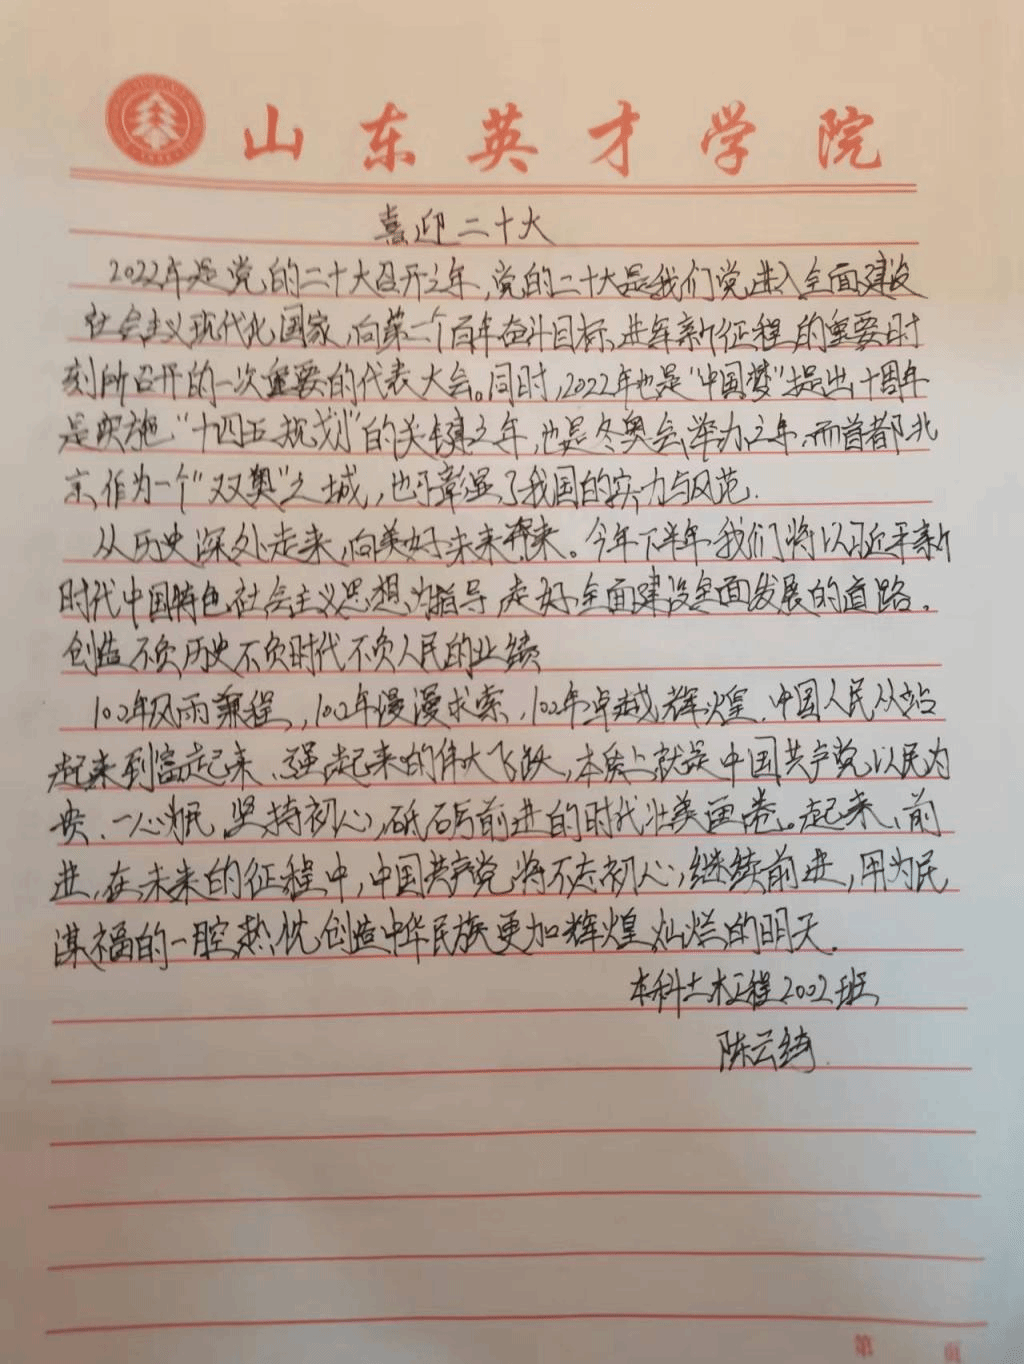 山东英才学院
喜迎二十大
2022年是党的二十大召开之年,党的二十大是我们党进入全面建设
社会主义现代化国家、向第二个百年奋斗目标进军新征程的重要时
刻所召开的一次重要的代表大会。同时,2022年也是“中国梦”提出十周年
是实施“十四五规划”的关键之年,也是冬奥会举办之年,而首都北
京作为一个“双奥”之城,也彰显了我国的实力与风范.
从历史深处走来,向美好未来奔来。今年下半年我们将以习近平新
时代中国特色社会主义思想为指导走好全面建设全面发展的道路,
创造不负历史不负时代不负人民的业绩
102年风雨兼程,102年漫漫求索,102年卓越辉煌.中国人民从站
起来到富起来、强起来的伟大飞跃,本质上就是中国共产党以民为
贵、一心为民、坚持初心,砥砺前进的时代壮美画卷。起来、前
进,在未来的征程中,中国共产党将不忘初心,继续前进,用为民
谋福的一腔热忱创造中华民族更加辉煌灿烂的明天.
本科土木工程2002班
陈云绮
第 页